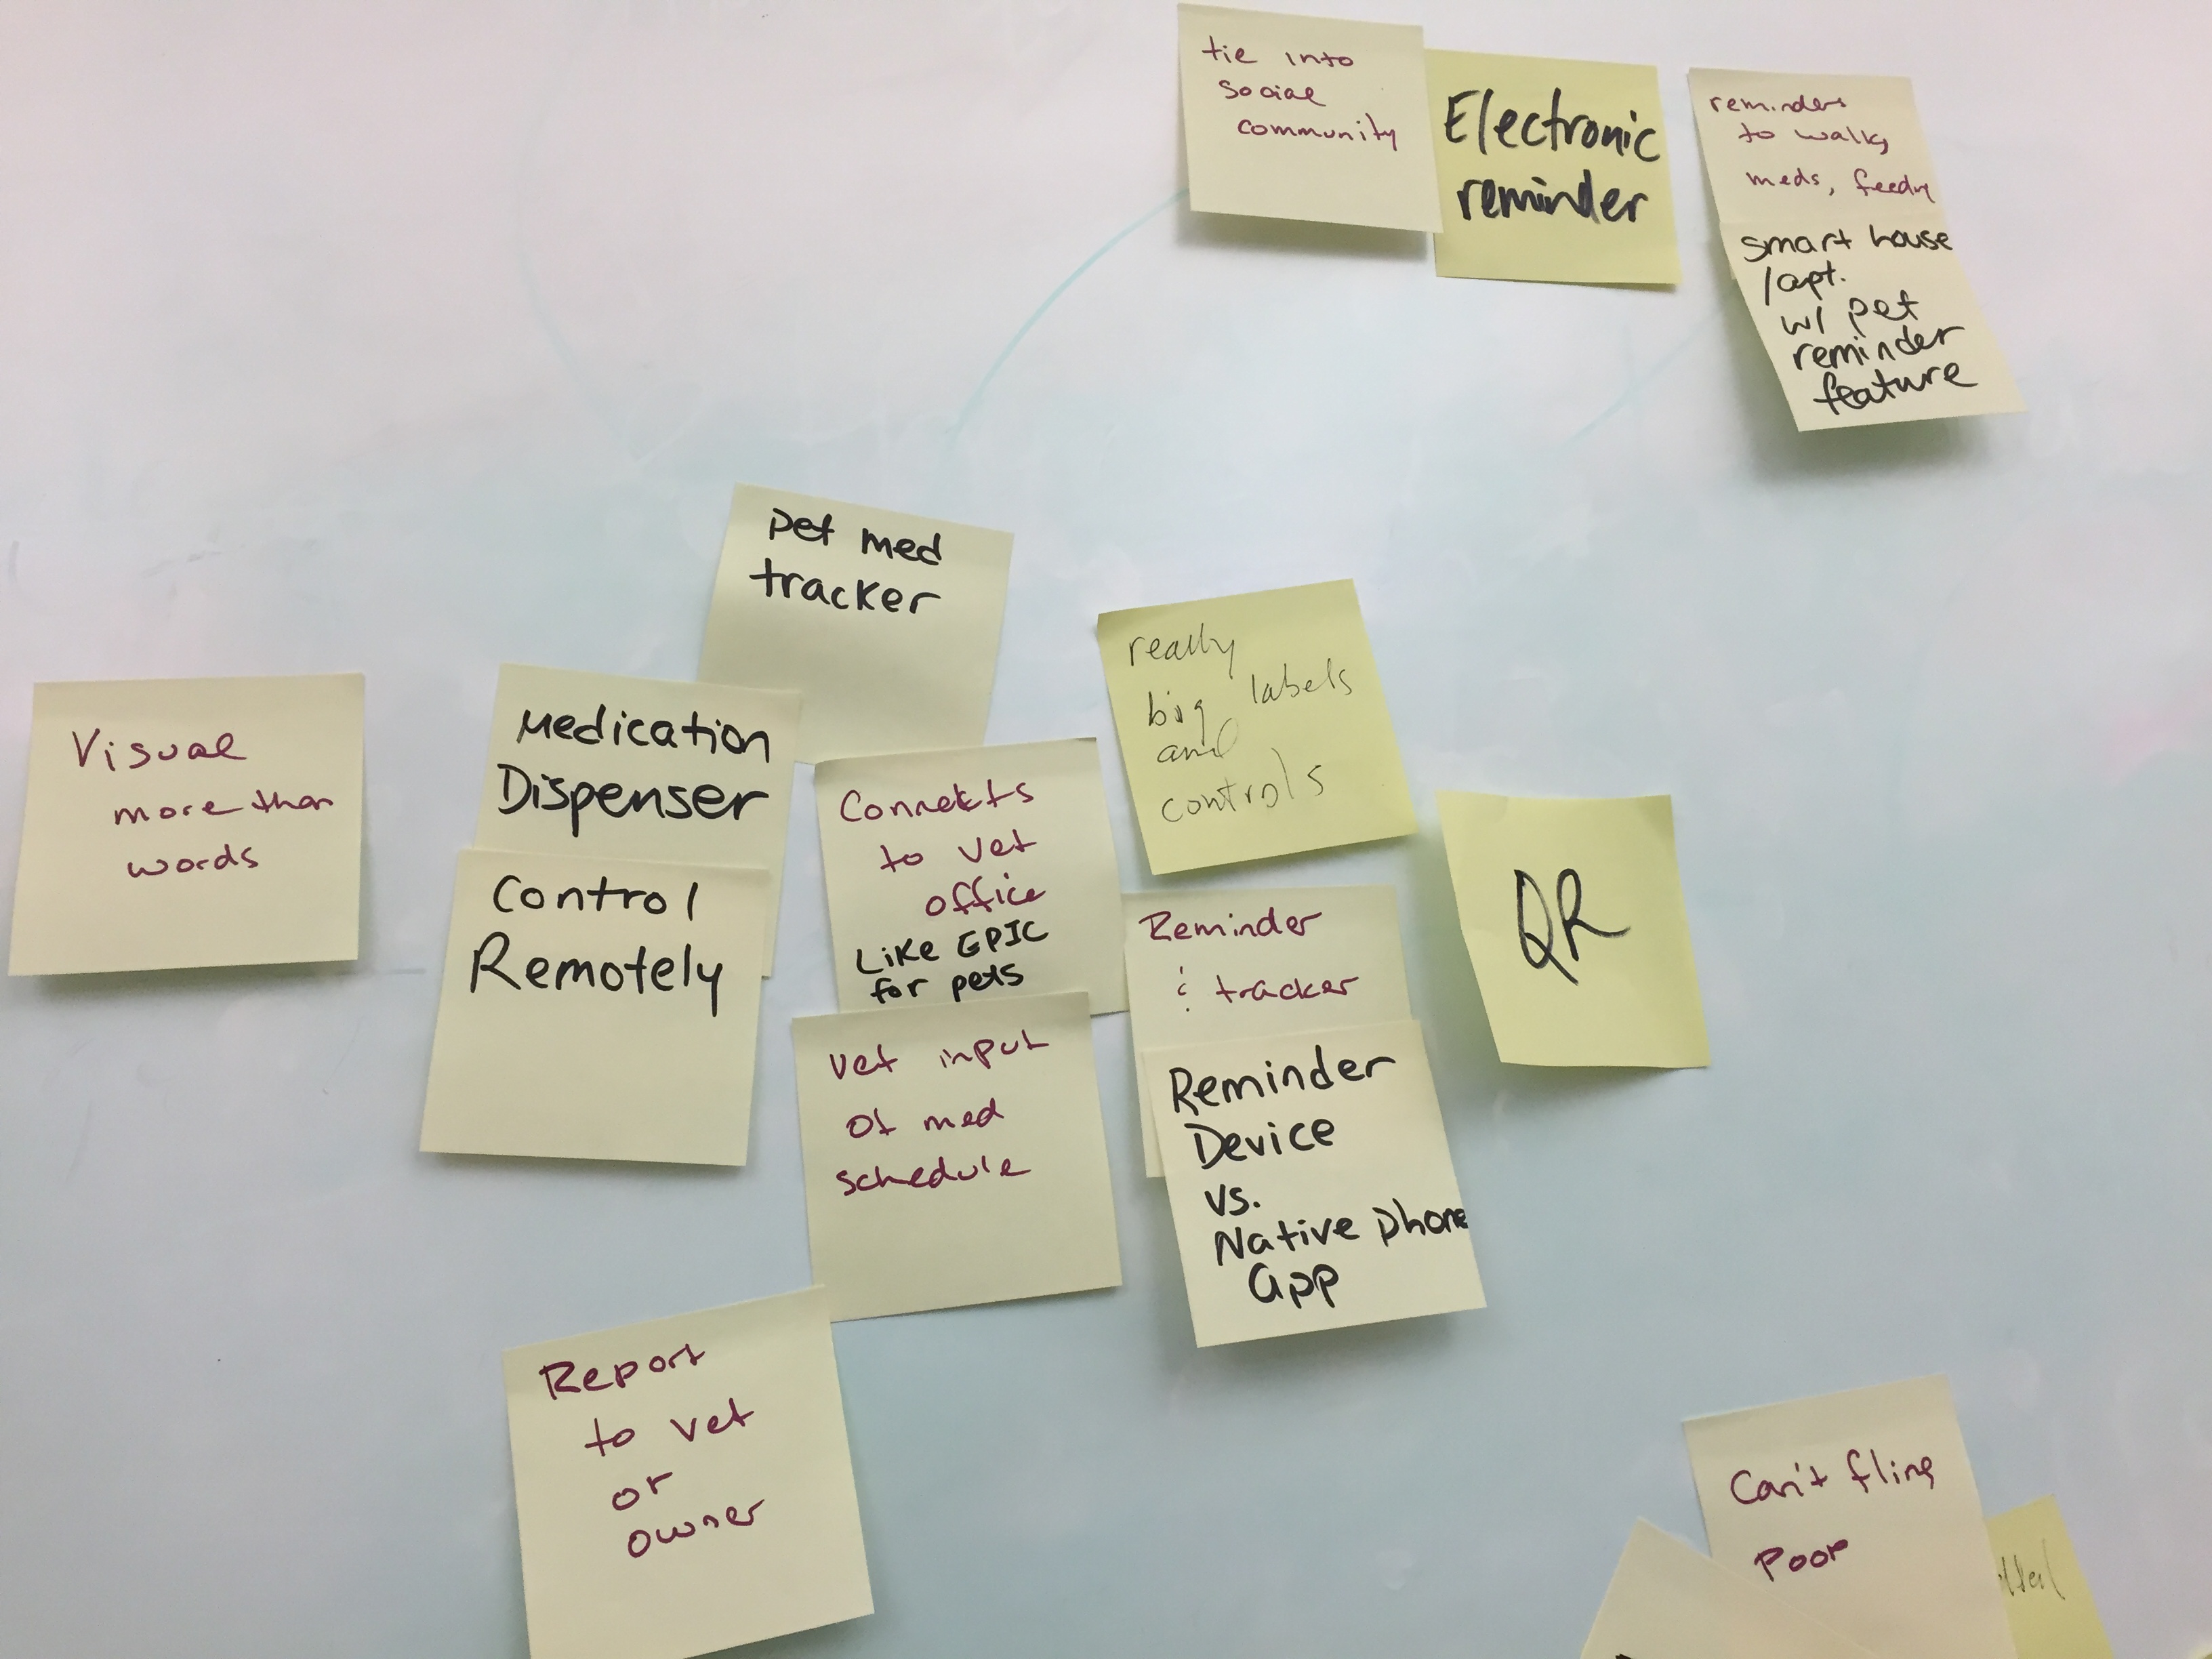 tie into
social
community
Electronic
reminder
reminders
to walk,
meds, feedng
smart house
/apt.
w/ pet
reminder
feature
pet med
tracker
really
big labels
and
controls
Visual
more than
words
Medication
Dispenser
Control
Remotely
Connects
to vet
office
Like EPIC
for pets
QR
Reminder
& tracker
vet input
of med
schedule
Reminder
Device
vs.
Native phone
app
Report
to vet
or
owner
Can't fling
Poop